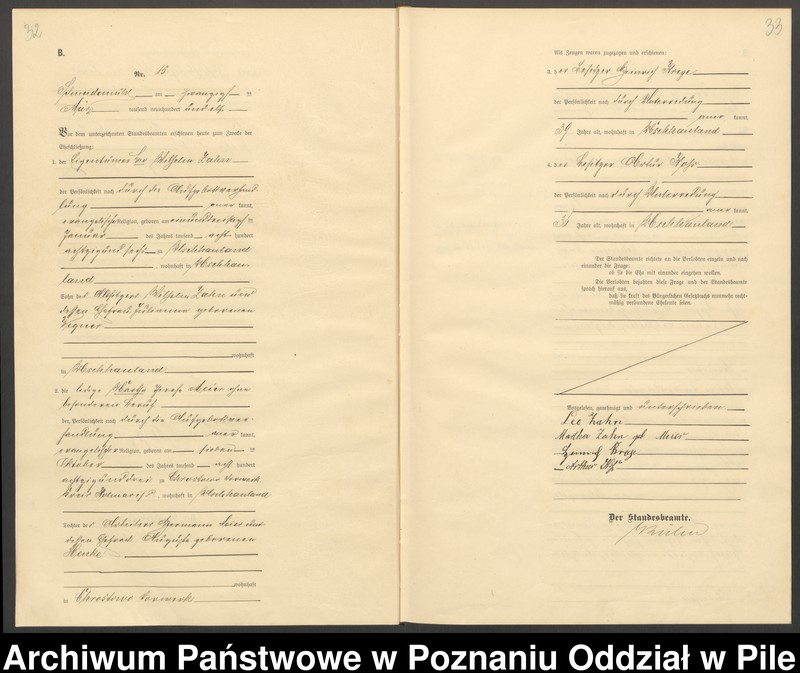 32
B.
Nr. 15
Schneidemühl am zwanzigst en
März tausend neunhundert und elf
Vor dem unterzeichneten Standesbeamten erschienen heute zum Zwecke der
Eheschließung:
1. der Eigentümer Leo Wilhelm Zahn
der Persönlichkeit nach durch die Aufgebotsverhand
lung aner kannt,
evangelischer Religion, geboren am einunddreißigst en
Januar des Jahres tausend acht hundert
achtzigundsechs in
, wohnhaft in
land
Sohn des Altsitzers Wilhelm Zahn und
dessen Ehefrau Julianna geborenen
wohnhaft
in
2. die ledige Martha Meier ohne
besonderen Beruf
der Persönlichkeit nach durch die Aufgebotsver-
handlung aner kannt,
evangelischer Religion, geboren am sieben en
Oktober des Jahres tausend acht hundert
achtzigunddrei zu Chrostowo Vorwerk
Kreis Kolmar, wohnhaft in
Tochter des Arbeiters Hermann Meier und
dessen Ehefrau Auguste geborenen
Henke
wohnhaft
in Chrostowo Vorwerk
33
Als Zeugen waren zugezogen und erschienen:
3. der Besitzer Heinrich
der Persönlichkeit nach durch Unterredung
aner kannt,
39 Jahre alt, wohnhaft in
4. der Besitzer Artur
der Persönlichkeit nach durch Unterredung
aner kannt,
Jahre alt, wohnhaft in
Der Standesbeamte richtete an die Verlobten einzeln und nach
einander die Frage:
ob sie die Ehe mit einander eingehen wollen.
Die Verlobten bejahten diese Frage und der Standesbeamte
sprach hierauf aus,
daß sie kraft des Bürgerlichen Gesetzbuchs nunmehr recht-
mäßig verbundene Eheleute seien.
Vorgelesen, genehmigt und unterschrieben
Leo Zahn
Martha Zahn geb Meier
Heinrich
Arthur
Der Standesbeamte.
Archiwum Państwowe w Poznaniu Oddział w Pile